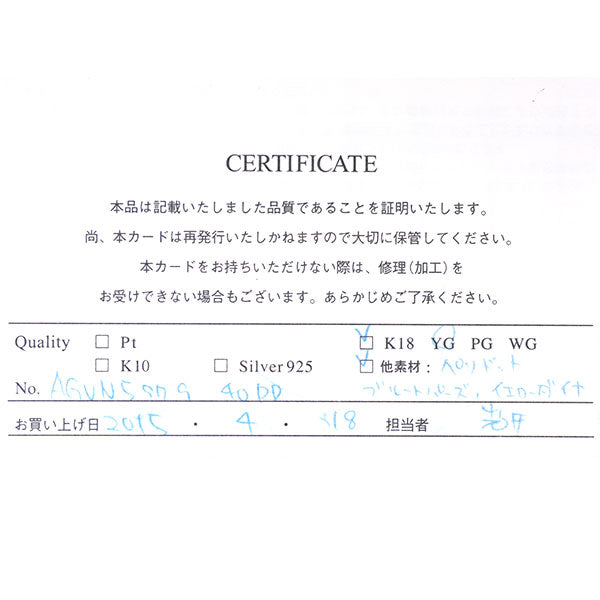 CERTIFICATE
本品は記載いたしました品質であることを証明いたします。
尚、本カードは再発行いたしかねますので大切に保管してください。
本カードをお持ちいただけない際は、修理(加工)を
お受けできない場合もございます。あらかじめご了承ください。
Quality □ Pt ☑ K18 YG PG WG
□ K10 □ Silver925 ☑ 他素材: ペリドット
No. ブルートパーズ,
お買い上げ日 2015 · 4 · 18 担当者